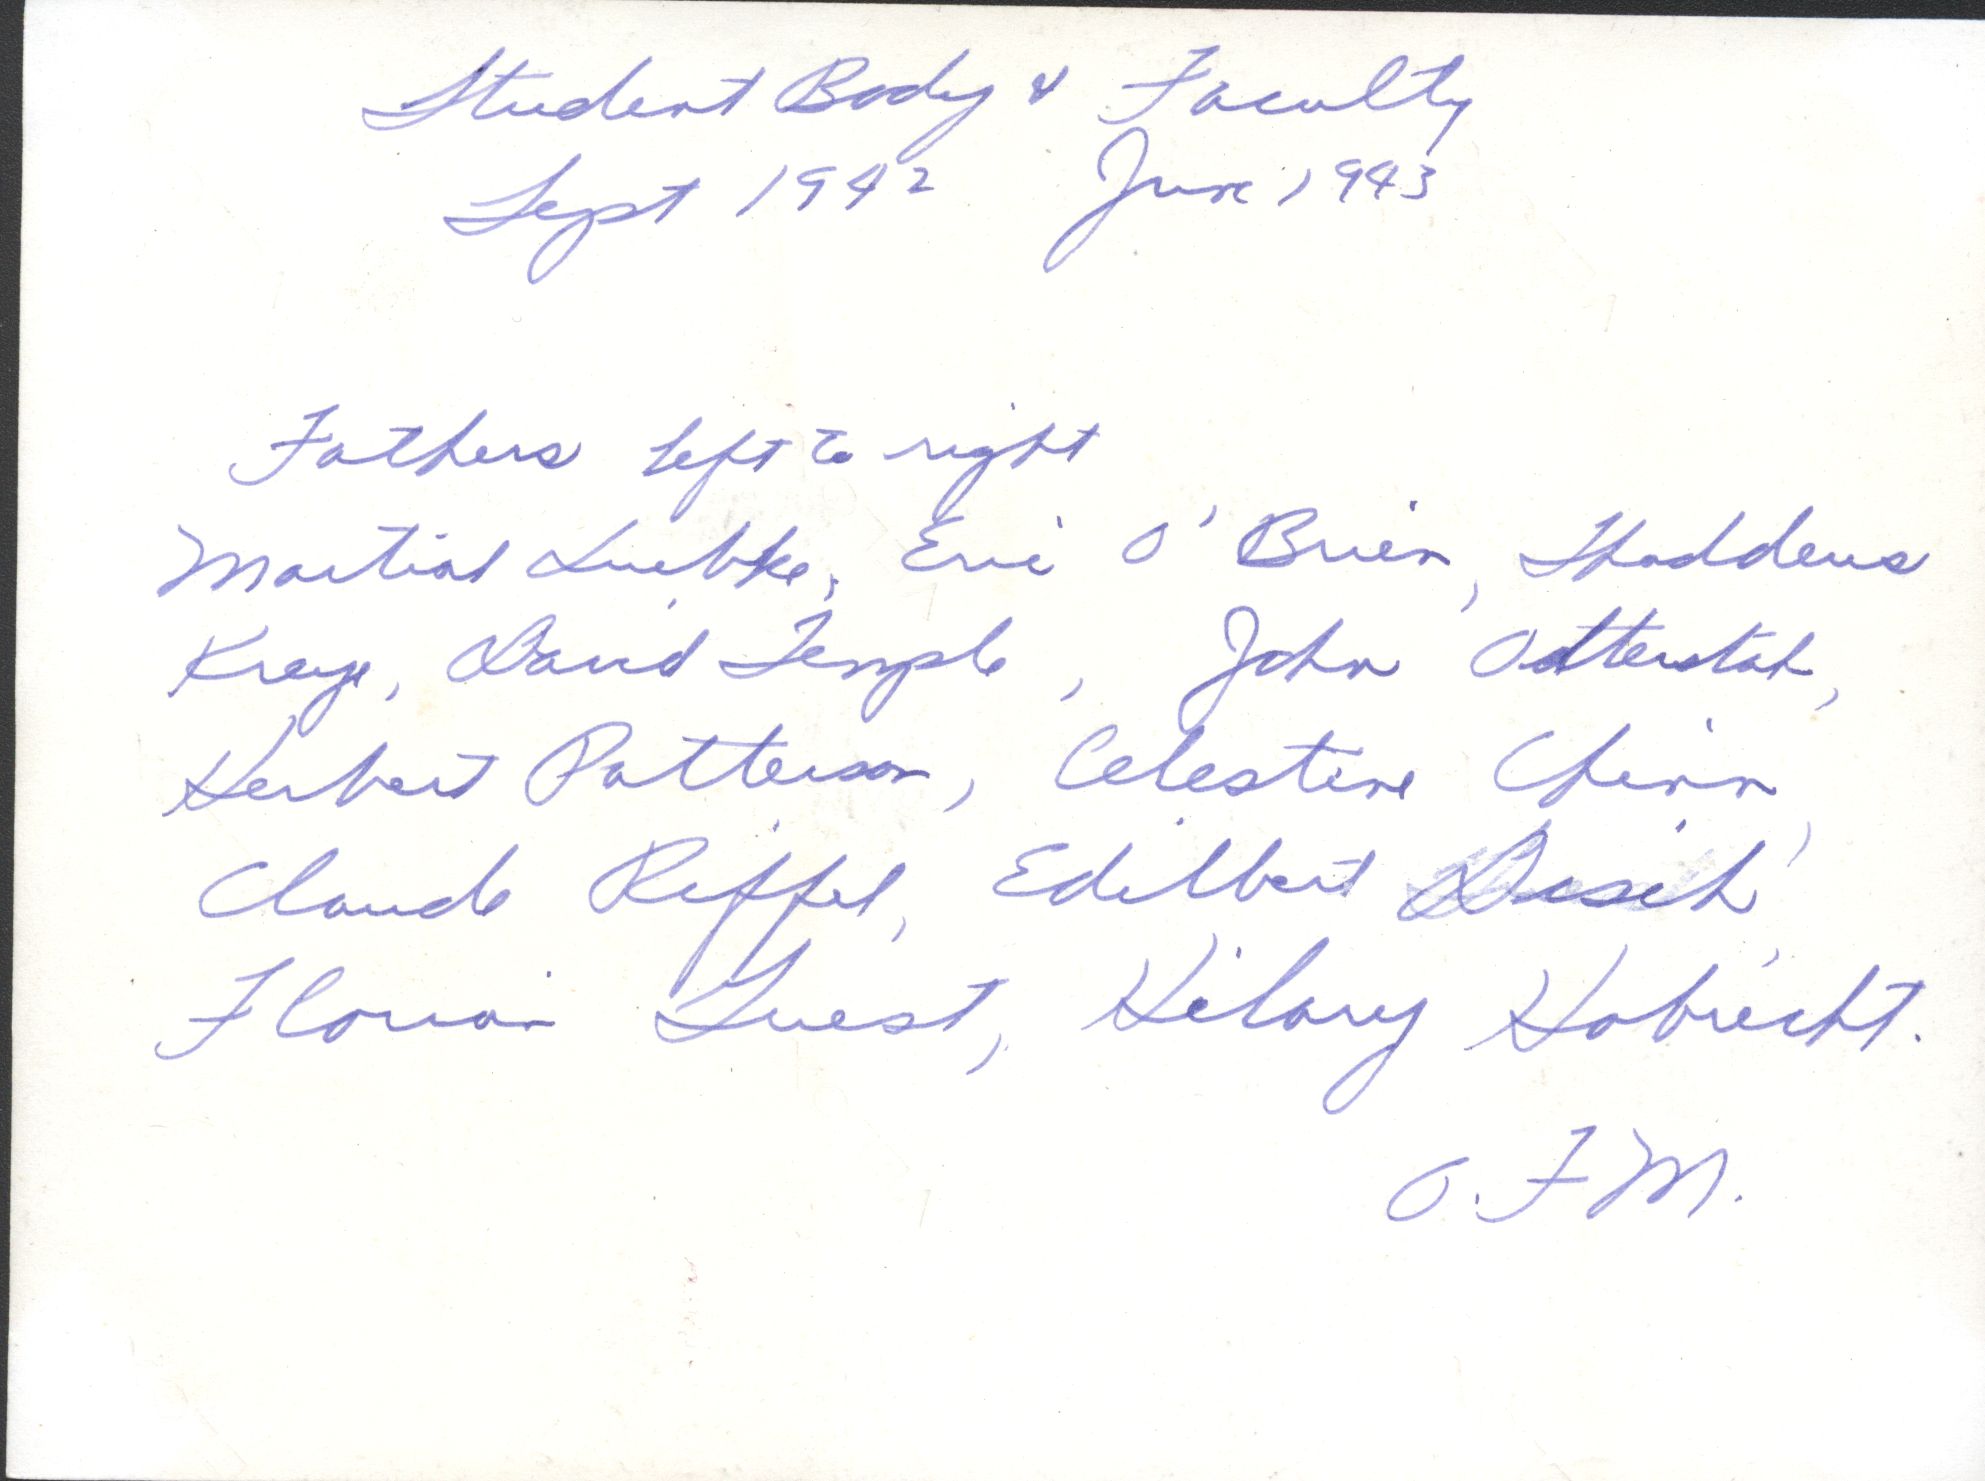 Student Body & Faculty
Sept 1942 June 1943
Fathers left to right
Martial Luebke, Eric O'Brien, Thaddeus
Kreye, David Temple, John
Herbert Patterson, Celestine Chinn,
Claude Riffel, Edilbert
Florian Guest, Hilary Hobrecht.
O.F.M.